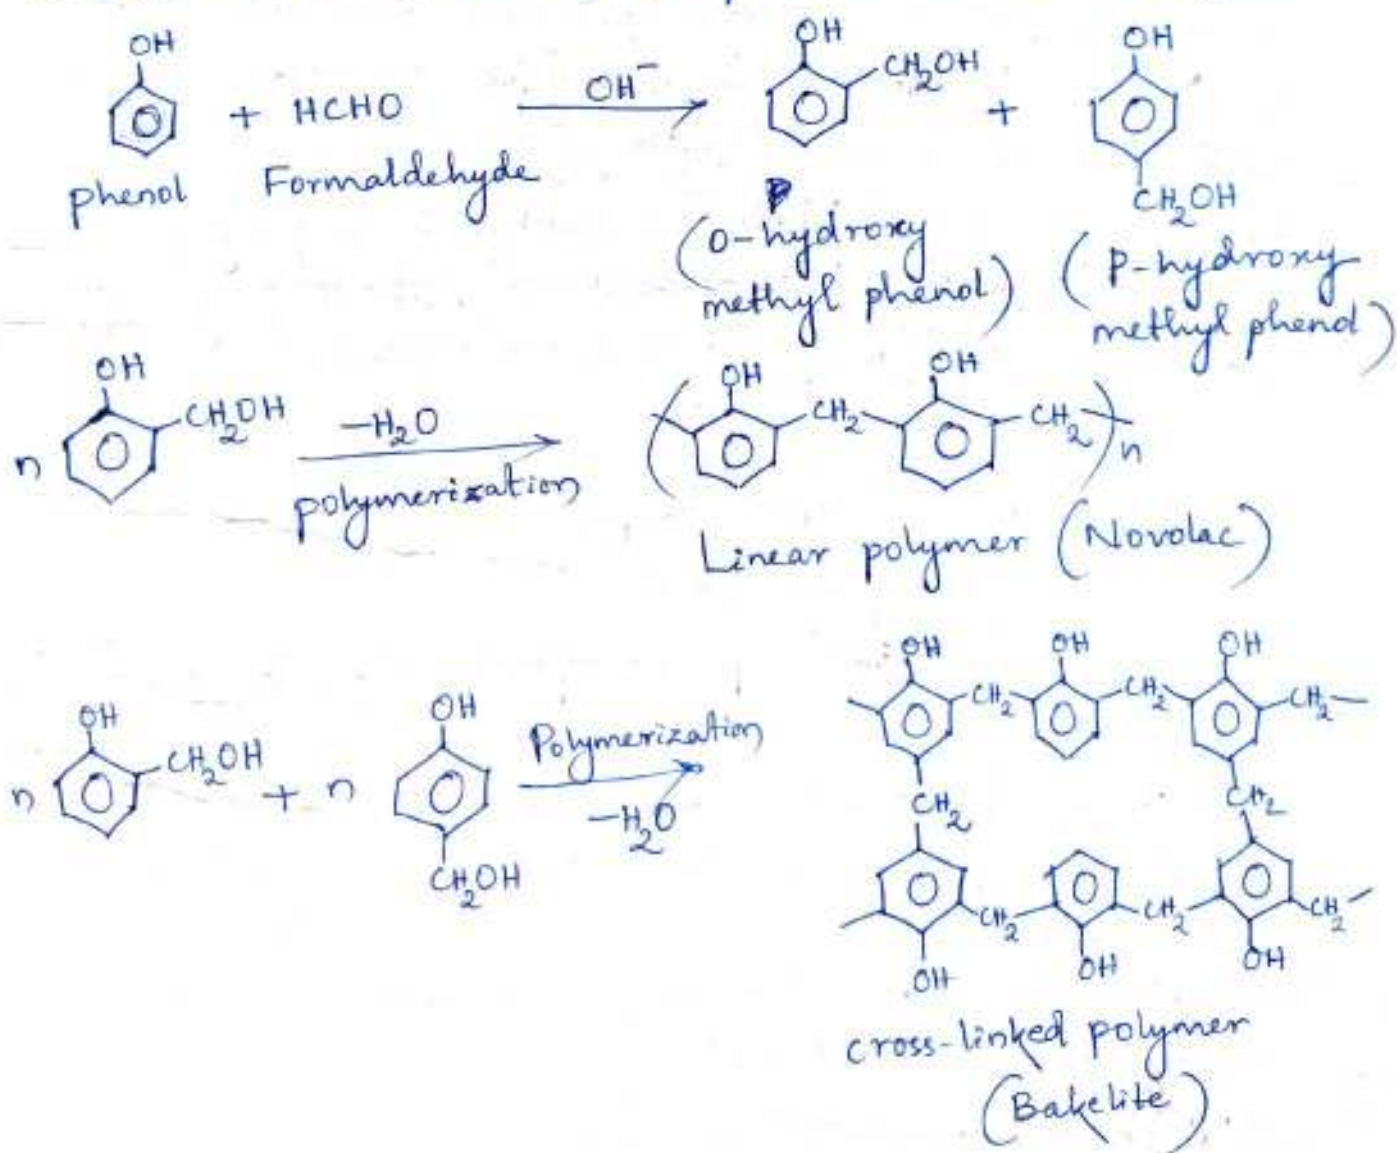 OH OH CH2OH OH
+ HCHO OH⁻ +
phenol Formaldehyde CH2OH
(o-hydroxy methyl phenol)
(p-hydroxy methyl phenol)
n OH CH2OH -H2O polymerization ( OH CH2 OH CH2 )n
Linear polymer (Novolac)
n OH CH2OH + n OH CH2OH Polymerization -H2O
OH OH OH
CH2 CH2 CH2
CH2 CH2
CH2 CH2 CH2
OH OH OH
cross-linked polymer
(Bakelite)